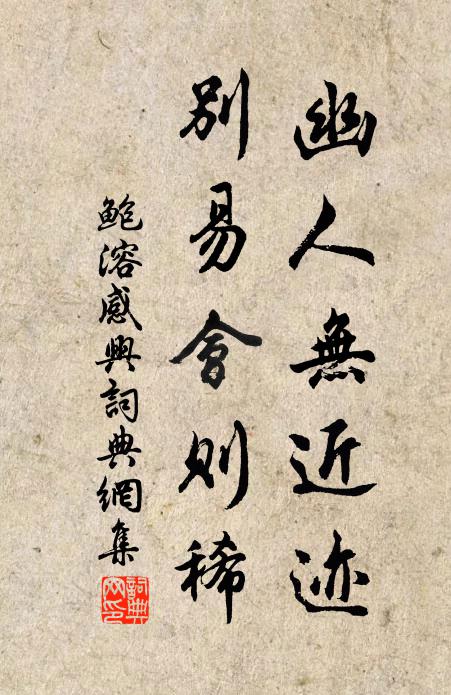 幽人無近迹
別易會則稀
鮑溶感興詞典網集
詞典